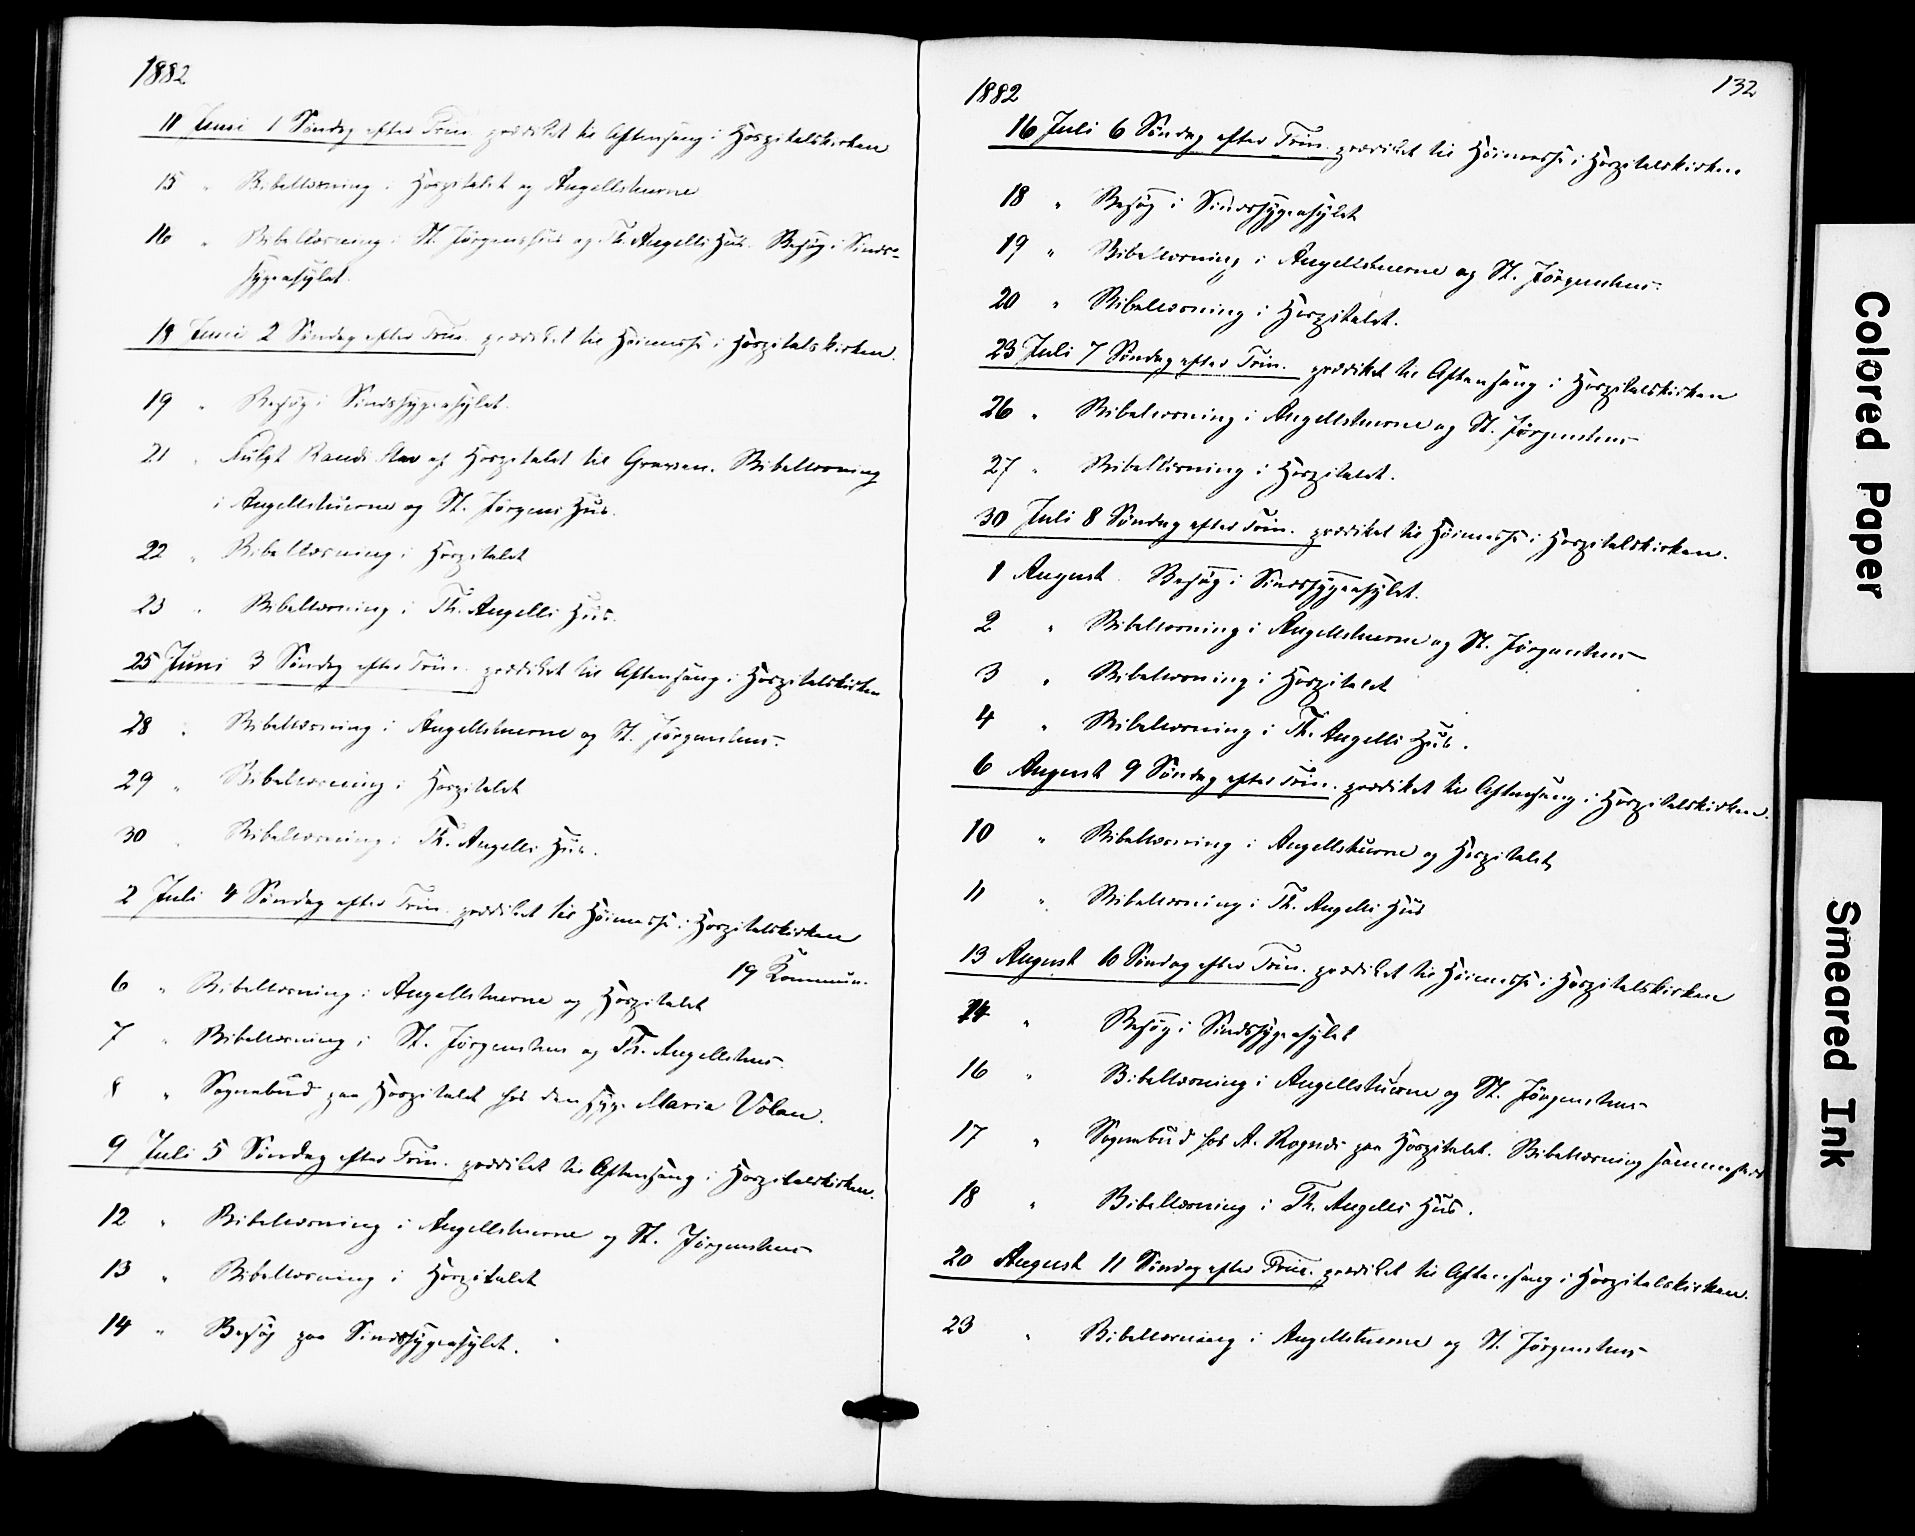 1882
11 Juni 1 Søndag efter Trin. prædiket til Aftensang i Hospitalskirken
15 " Bibellæsning i Hospitalet og Angellstuerne
16 " Bibellæsning i St. Jørgenshus og Th. Angells Hus. Besøg i Sinds-
sygeasylet.
18 Juni 2 Søndag efter Trin. prædiket til Høimesse i Hospitalskirken.
19 " Besøg i Sindssygeasylet.
21 " Fulgt Randi af Hospitalet til Graven. Bibellæsning
i Angellstuerne og St. Jørgens Hus.
22 " Bibellæsning i Hospitalet
23 " Bibellæsning i Th. Angells Hus.
25 Juni 3 Søndag efter Trin. prædiket til Aftensang i Hospitalskirken
28 " Bibellæsning i Angellstuerne og St. Jørgenshus.
29 " Bibellæsning i Hospitalet
30 " Bibellæsning i Th. Angells Hus.
2 Juli 4 Søndag efter Trin. prædiket til Høimesse i Hospitalskirken
19 Kommun.
6 " Bibellæsning i Angellstuerne og Hospitalet
7 " Bibellæsning i St. Jørgenshus og Th. Angellshus.
8 " Sognebud paa Hospitalet hos den syge Maria Volan.
9 Juli 5 Søndag efter Trin. prædiket til Aftensang i Hospitalskirken.
12 " Bibellæsning i Angellstuerne og St. Jørgenshus
13 " Bibellæsning i Hospitalet
14 " Besøg paa Sindssygeasylet.
1882
132
16 Juli 6 Søndag efter Trin. prædiket til Høimesse i Hospitalskirken
18 " Besøg i Sindssygeasylet
19 " Bibellæsning i Angellstuerne og St. Jørgenshus.
20 " Bibellæsning i Hospitalet.
23 Juli 7 Søndag efter Trin. prædiket til Aftensang i Hospitalskirken
26 " Bibellæsning i Angellstuerne og St. Jørgenshus
27 " Bibellæsning i Hospitalet.
30 Juli 8 Søndag efter Trin. prædiket til Høimesse i Hospitalskirken.
1 August Besøg i Sindssygeasylet.
2 " Bibellæsning i Angellstuerne og St. Jørgenshus
3 " Bibellæsning i Hospitalet
4 " Bibellæsning i Th. Angells Hus.
6 August 9 Søndag efter Trin. prædiket til Aftensang i Hospitalskirken.
10 " Bibellæsning i Angellstuerne og Hospitalet
11 " Bibellæsning i Th. Angells Hus
13 August 10 Søndag efter Trin. prædiket til Høimesse i Hospitalskirken
14 " Besøg i Sindssygeasylet
16 " Bibellæsning i Angellstuerne og St. Jørgenshus
17 " Sognebud hos A. Rognes paa Hospitalet. Bibellæsning sammesteds
18 " Bibellæsning i Th. Angells Hus.
20 August 11 Søndag efter Trin. prædiket til Aftensang i Hospitalskirken.
23 " Bibellæsning i Angellstuerne og St. Jørgenshus
Colored Paper
Smeared Ink